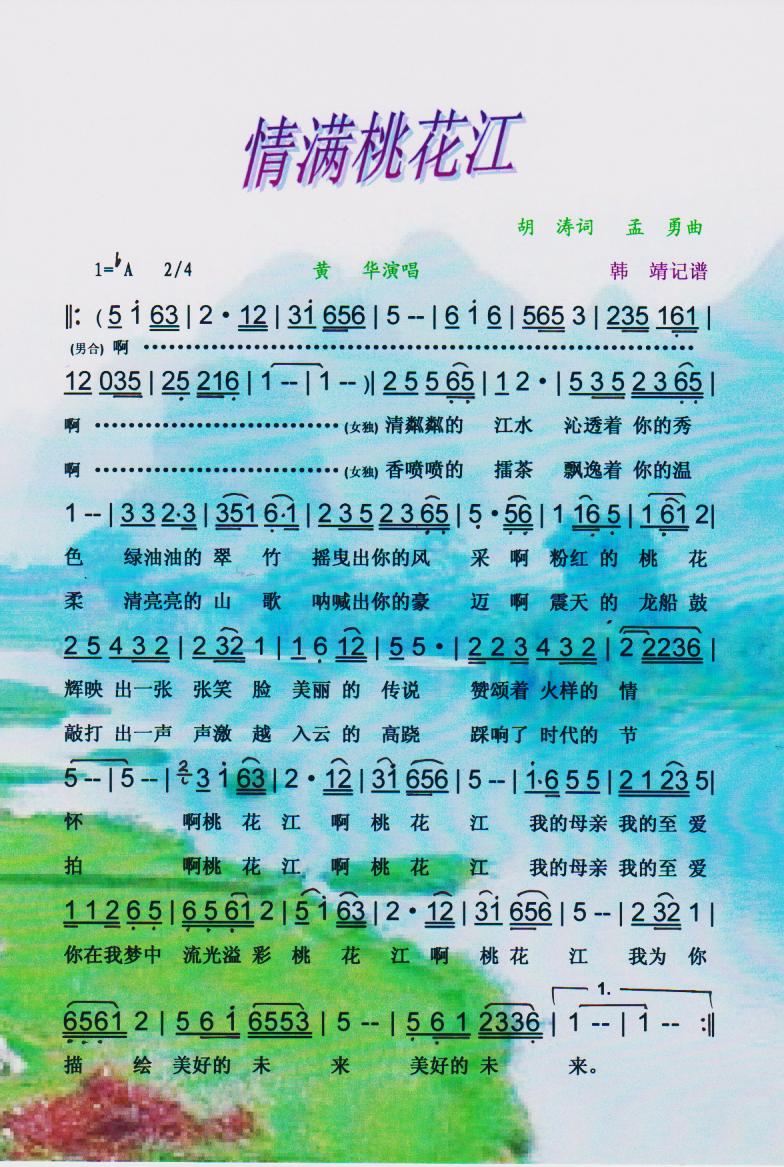 情满桃花江
胡 涛词 孟 勇曲
1=♭A 2/4 黄 华演唱 韩 靖记谱
‖: ( 5 1 63 | 2 · 12 | 31 656 | 5 -- | 6 1 6 | 565 3 | 235 161 |
(男合) 啊
12 035 | 25 216 | 1 -- | 1 -- )| 2 5 5 65 | 1 2 · | 5 3 5 2 3 65 |
啊 (女独) 清粼粼的 江水 沁透着 你的秀
啊 (女独) 香喷喷的 擂茶 飘逸着 你的温
1 -- | 3 3 2·3 | 351 6·1 | 2 3 5 2 3 65 | 5 · 56 | 1 16 5 | 1 61 2|
色 绿油油的 翠 竹 摇曳出你的风 采 啊 粉红 的 桃 花
柔 清亮亮的 山 歌 呐喊出你的豪 迈 啊 震天 的 龙船 鼓
2 5 4 3 2 | 2 32 1 | 1 6 12 | 5 5 · | 2 2 3 4 3 2 | 2 2236 |
辉映 出一张 张笑 脸 美丽 的 传说 赞颂着 火样的 情
敲打 出一声 声激 越 入云 的 高跷 踩响了 时代的 节
5 -- | 5 -- | 3 1 63 | 2 · 12 | 31 656 | 5 -- | 1·6 5 5 | 2 1 23 5|
怀 啊桃 花 江 啊 桃 花 江 我的母亲 我的至 爱
拍 啊桃 花 江 啊 桃 花 江 我的母亲 我的至 爱
1 1 2 6 5 | 6 5 61 2 | 5 1 63 | 2 · 12 | 31 656 | 5 -- | 2 32 1 |
你在我梦中 流光溢 彩 桃 花 江 啊 桃 花 江 我 为 你
1.
6561 2 | 5 6 1 6553 | 5 -- | 5 6 1 2336 | 1 -- | 1 -- :‖
描 绘 美好的 未 来 美好的 未 来。